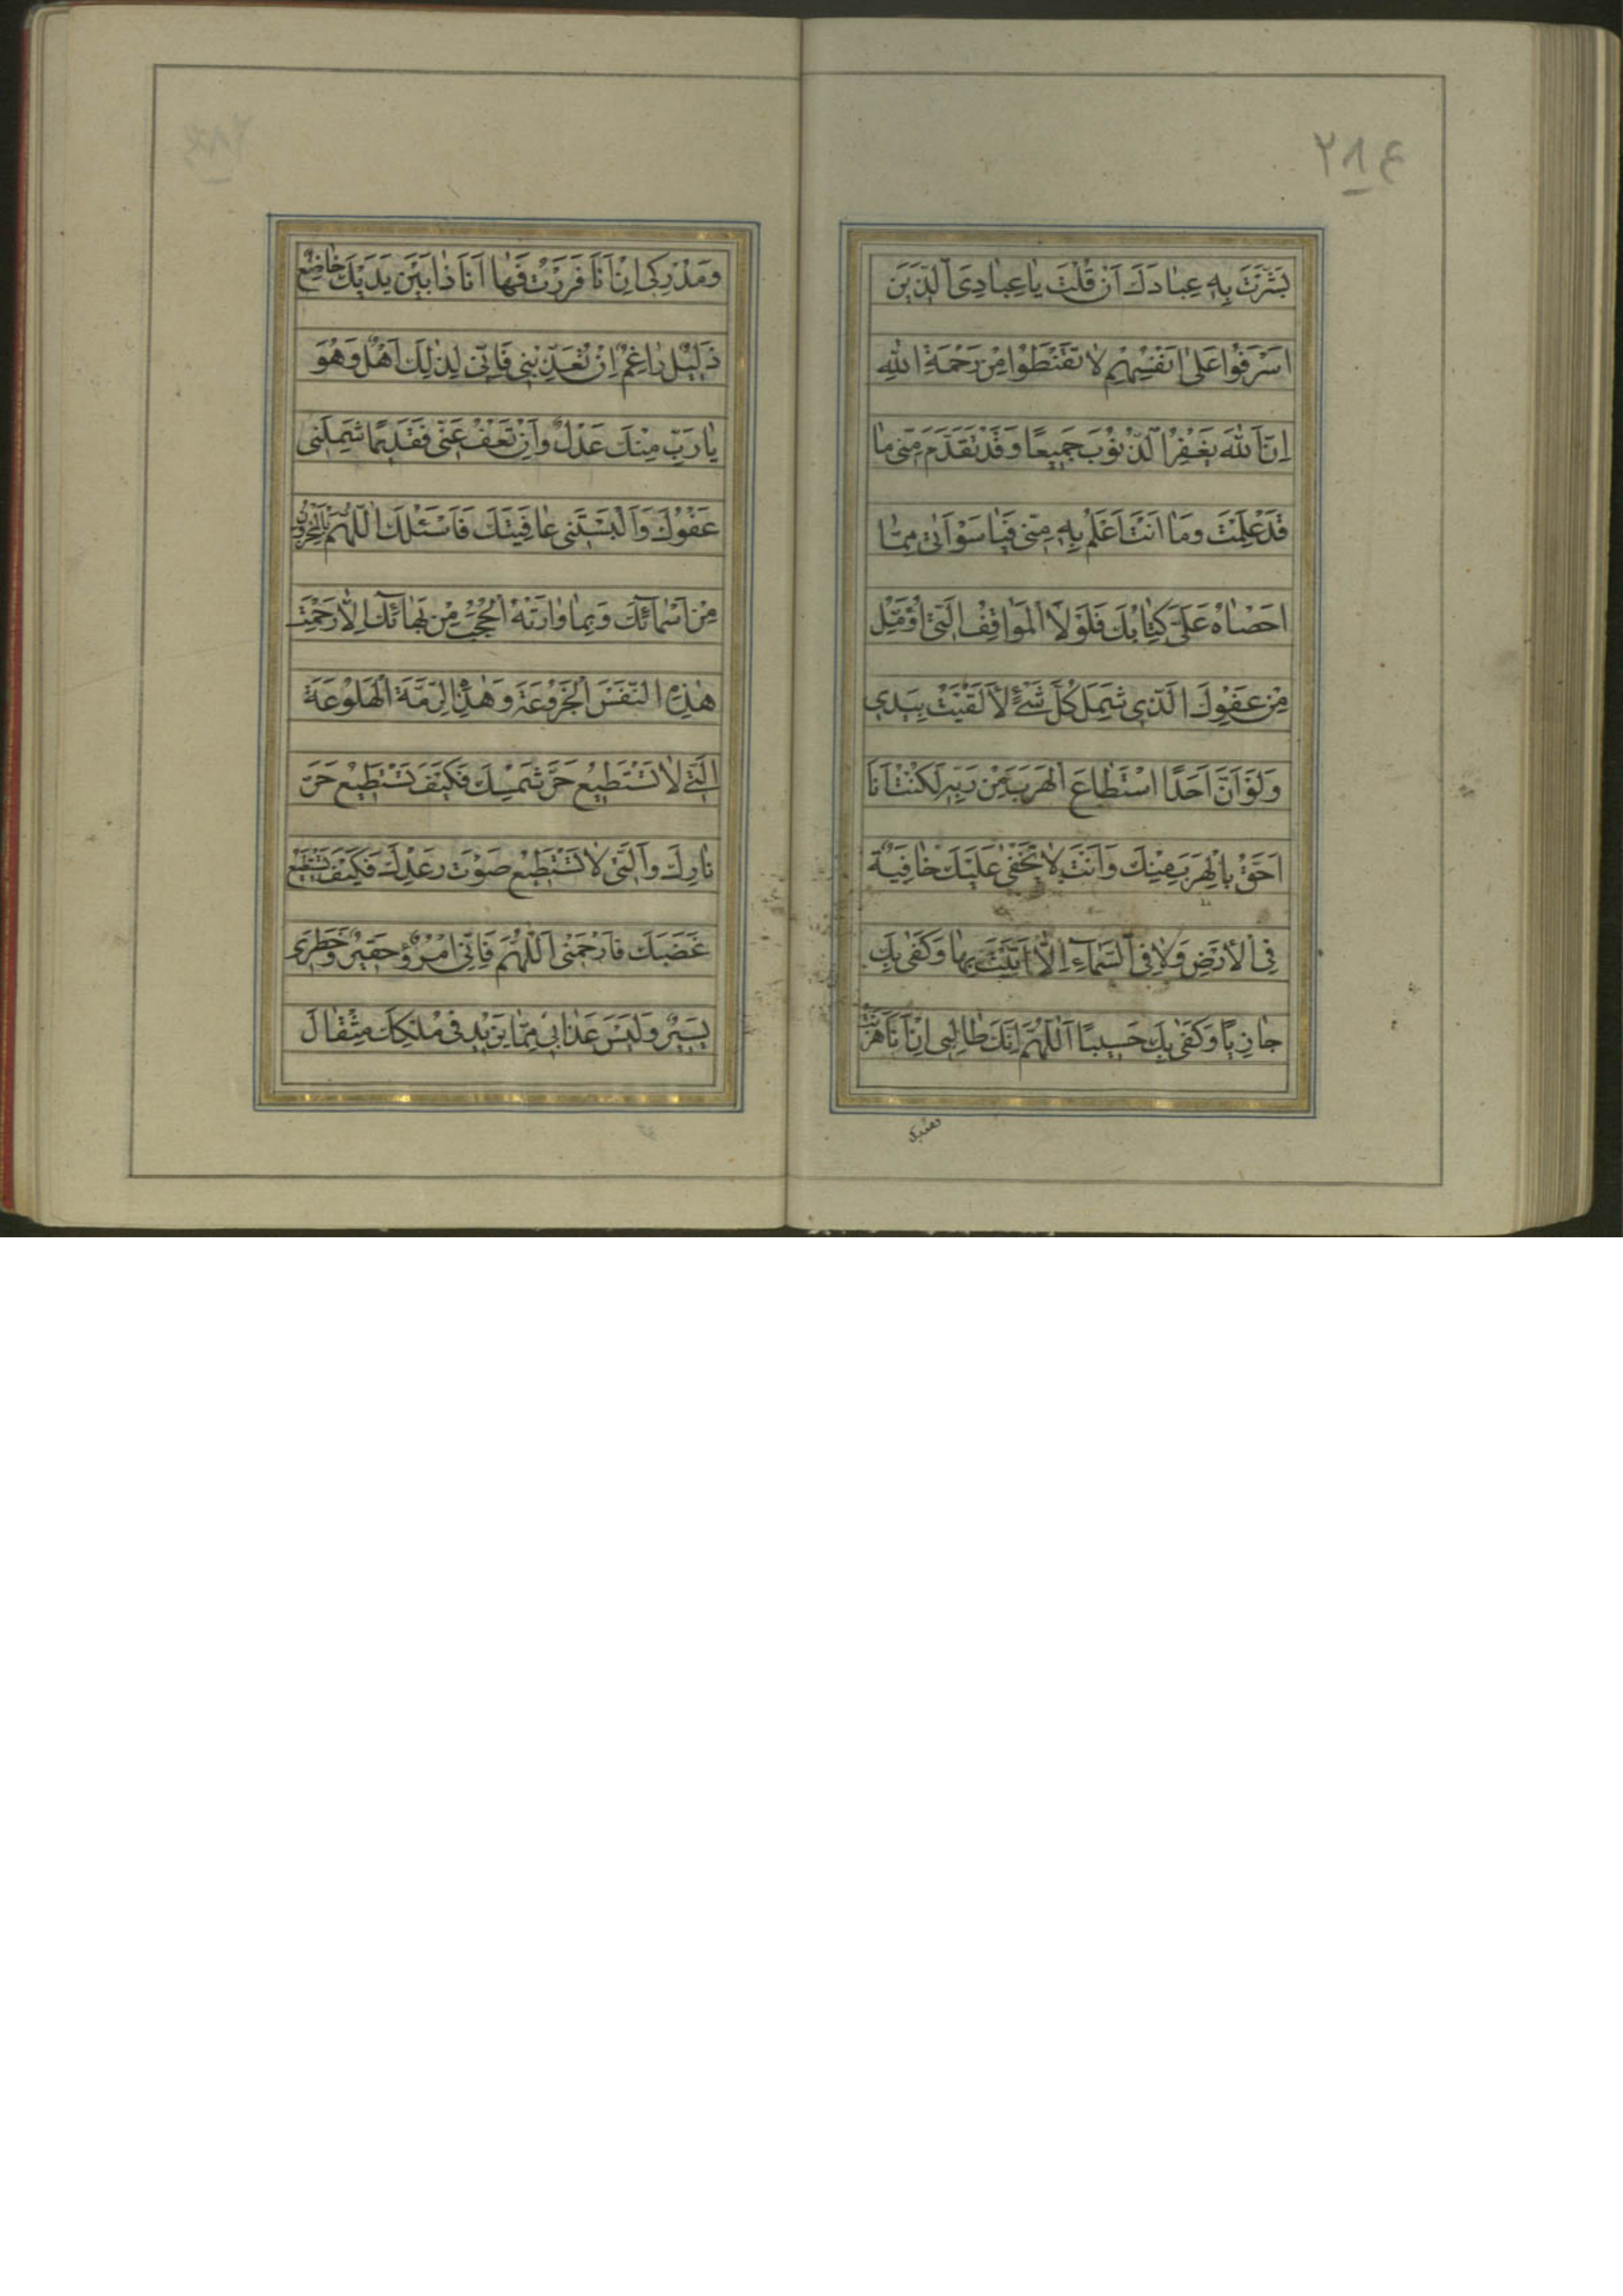 ٢٨٤
بَشَّرْتَ بِهِ عِبَادَكَ اَنْ قُلْتَ يَا عِبَادِيَ الَّذِينَ
اَسْرَفُوا عَلٰى اَنْفُسِهِمْ لَا تَقْنَطُوا مِنْ رَحْمَةِ اللّٰهِ
اِنَّ اللّٰهَ يَغْفِرُ الذُّنُوبَ جَمِيعًا وَقَدْ تَقَدَّمَ مِنِّي مَا
قَدْ عَلِمْتَ وَمَا اَنْتَ اَعْلَمُ بِهِ مِنِّي فَيَا سَوْاَتَا مِمَّا
اَحْصَاهُ عَلَيَّ كِتَابُكَ فَلَوْلَا الْمَوَاقِفُ الَّتِي اُؤَمِّلُ
مِنْ عَفْوِكَ الَّذِي شَمِلَ كُلَّ شَيْءٍ لَاَلْقَيْتُ بِيَدِي
وَلَوْ اَنَّ اَحَدًا اسْتَطَاعَ الْهَرَبَ مِنْ رَبِّهِ لَكُنْتُ اَنَا
اَحَقَّ بِالْهَرَبِ مِنْكَ وَاَنْتَ لَا تَخْفٰى عَلَيْكَ خَافِيَةٌ
فِي الْاَرْضِ وَلَا فِي السَّمَاءِ اِلَّا اَتَيْتَ بِهَا وَكَفٰى بِكَ
جَازِيًا وَكَفٰى بِكَ حَسِيبًا اَللّٰهُمَّ اِنَّكَ طَالِبِي اِنْ اَنَا هَرَبْتُ
وَمُدْرِكِي اِنْ اَنَا فَرَرْتُ فَهَا اَنَا ذَا بَيْنَ يَدَيْكَ خَاضِعٌ
ذَلِيلٌ رَاغِمٌ اِنْ تُعَذِّبْنِي فَاِنِّي لِذٰلِكَ اَهْلٌ وَهُوَ
يَا رَبِّ مِنْكَ عَدْلٌ وَاِنْ تَعْفُ عَنِّي فَقَدِيمًا شَمِلَنِي
عَفْوُكَ وَاَلْبَسْتَنِي عَافِيَتَكَ فَاَسْئَلُكَ اللّٰهُمَّ بِالْمَخْزُونِ
مِنْ اَسْمَائِكَ وَبِمَا وَارَتْهُ الْحُجُبُ مِنْ بَهَائِكَ اِلَّا رَحِمْتَ
هٰذِهِ النَّفْسَ الْجَزُوعَةَ وَهٰذِهِ الرِّمَّةَ الْهَلُوعَةَ
الَّتِي لَا تَسْتَطِيعُ حَرَّ شَمْسِكَ فَكَيْفَ تَسْتَطِيعُ حَرَّ
نَارِكَ وَالَّتِي لَا تَسْتَطِيعُ صَوْتَ رَعْدِكَ فَكَيْفَ تَسْتَطِيعُ
غَضَبَكَ فَارْحَمْنِي اللّٰهُمَّ فَاِنِّي امْرُؤٌ حَقِيرٌ وَخَطَرِي
يَسِيرٌ وَلَيْسَ عَذَابِي مِمَّا يَزِيدُ فِي مُلْكِكَ مِثْقَالَ